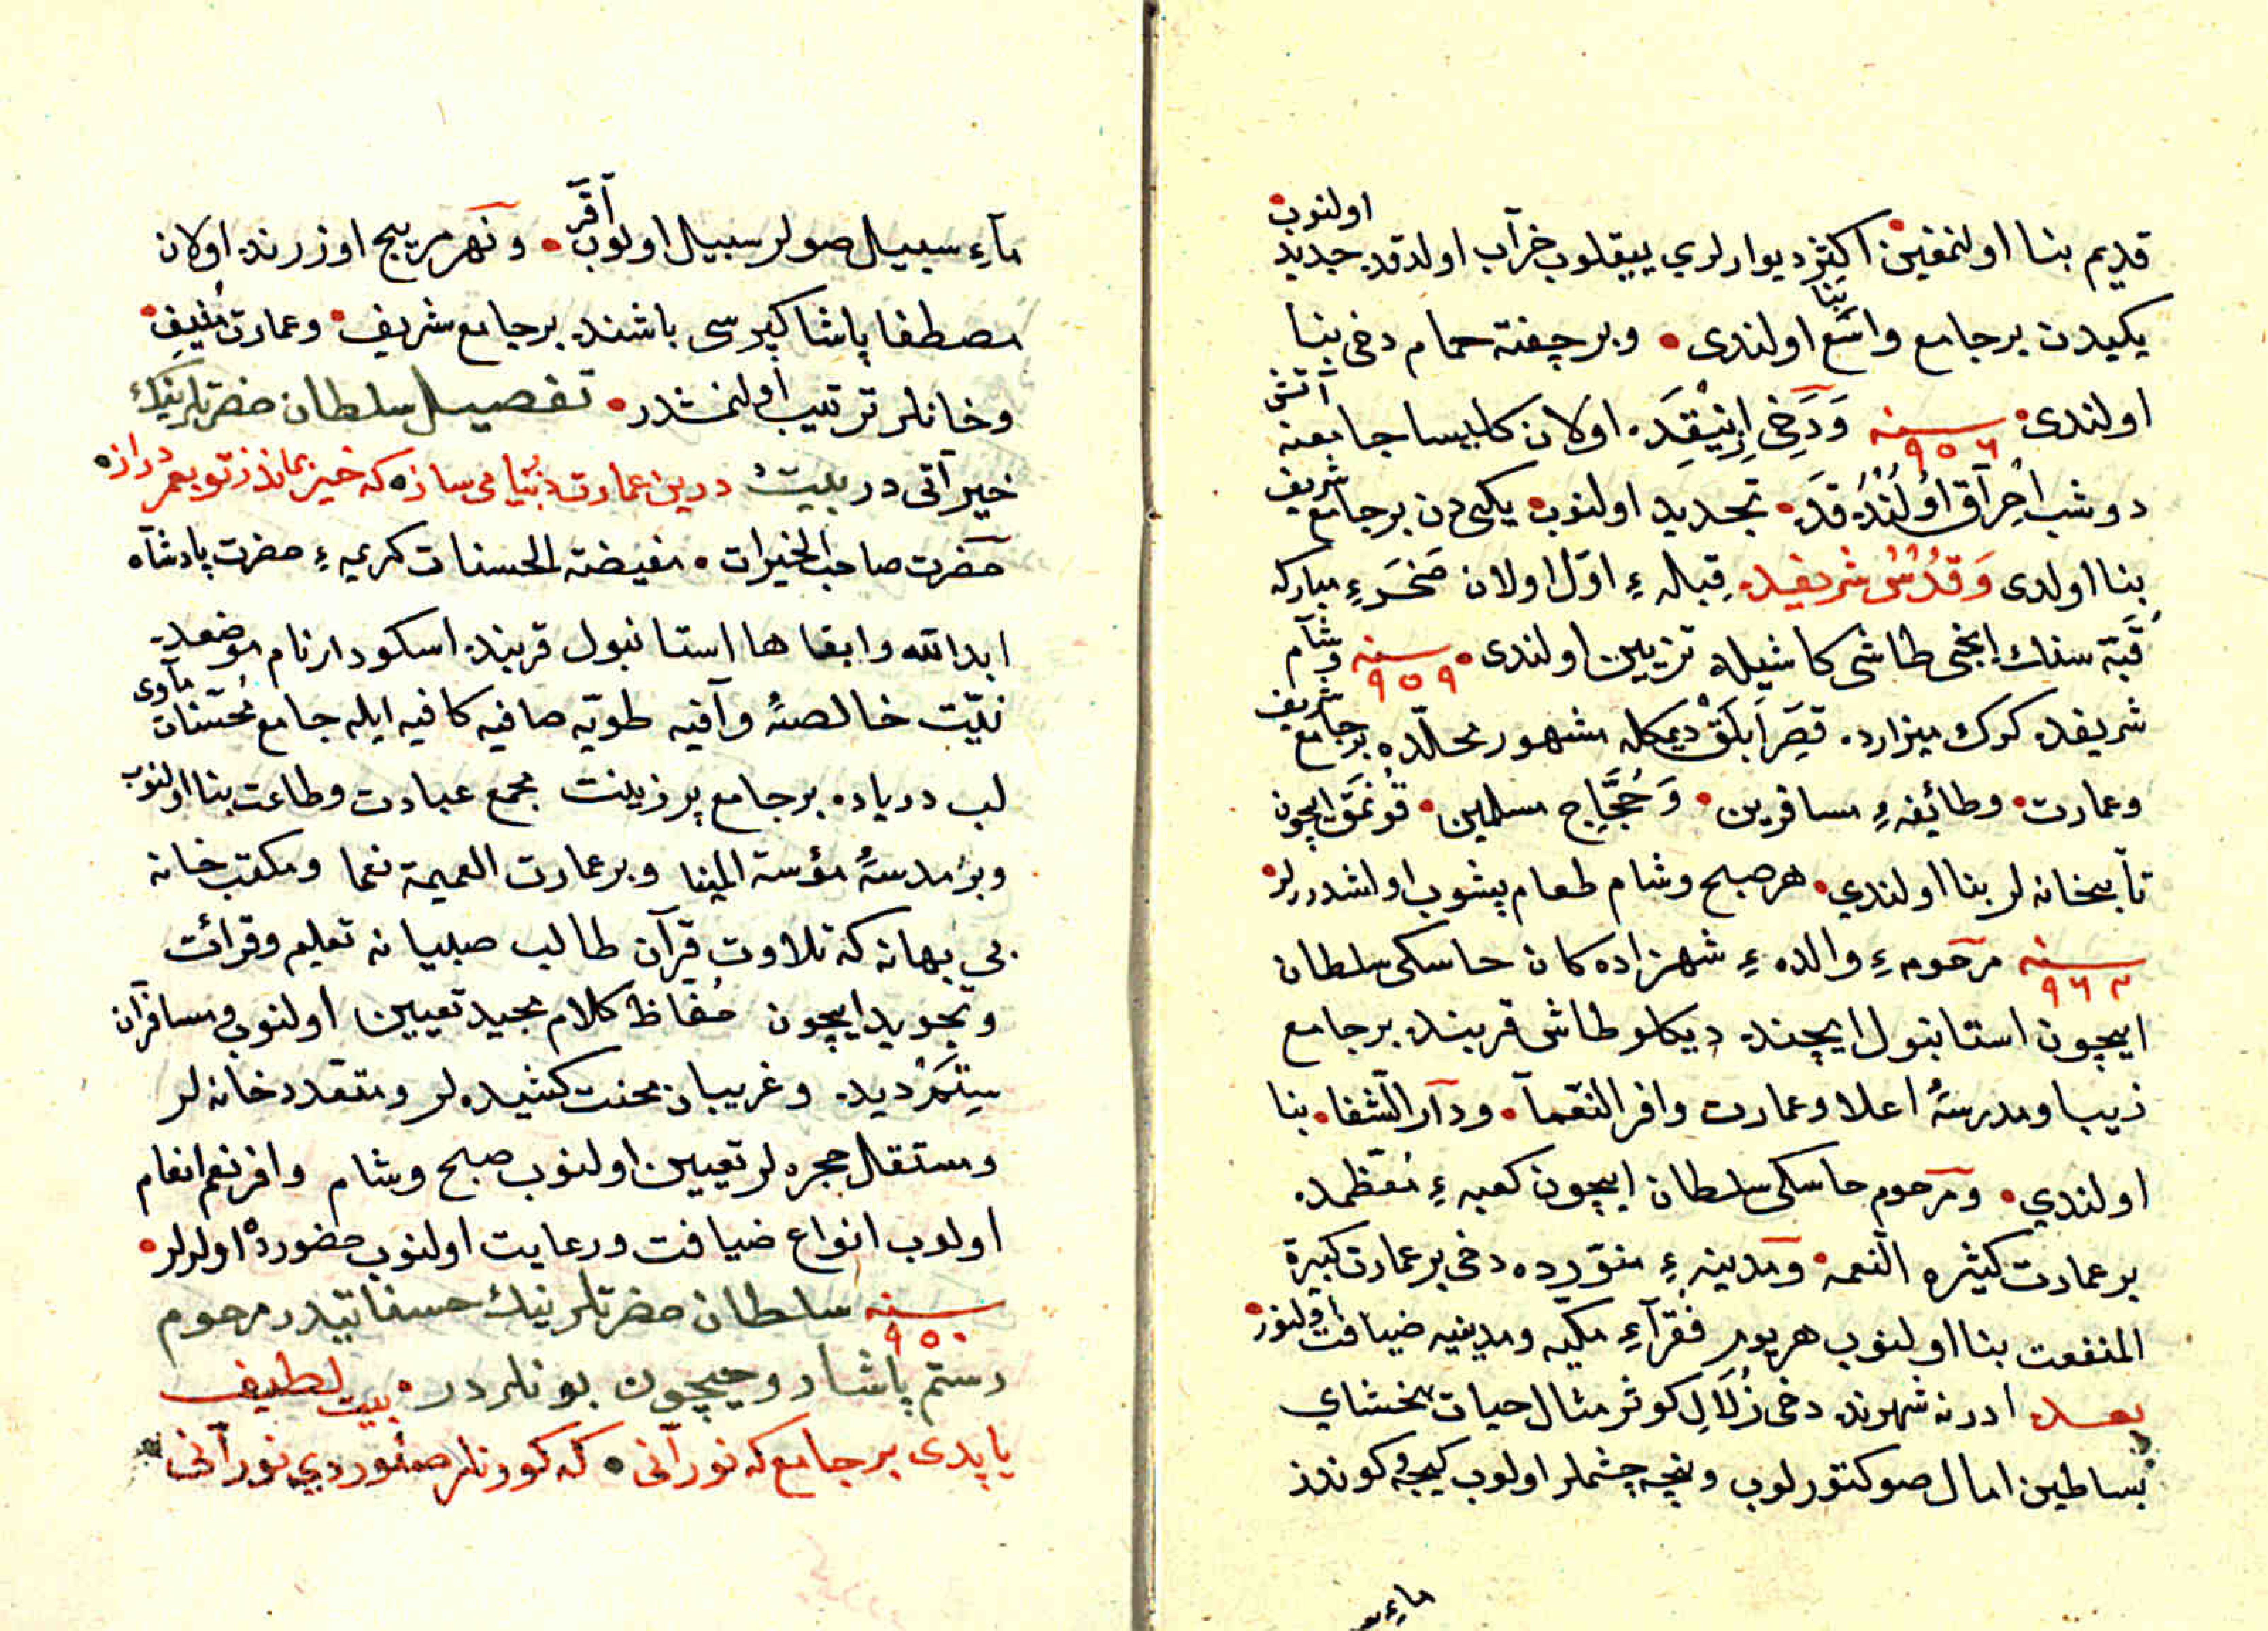 قديم بنا اولنمغين اكثر ديوارلري ييقلوب خرآب اولدقده جديد اولنوب
يكيدن بر جامع واسع بنا اولندى • وبر چفته حمام دخى بنا
اولندى • سنه ٩٥٦ وَدَخى اِزنيقده اولان كليسا جامعنه آتش
دوشب احرآق اولندقده • تجديد اولنوب يكى دن بر جامع شريف
بنا اولدى وَقُدُس شريفده قبله ءِ اوّل اولان صَخرَءِ مباركه
قُبّه سنك ايخى طاشى كاشيله تزيين اولندى • سنه ٩٥٩ وشآم
شريفده كوك ميزارده قصر اَبلَق ديمكله مشهور محلّده بر جامع شريف
وعمارت • وطائفهءِ مسافرين • وَحُجَّاج مسلمين • قونمَق ايچون
تآبخانه لر بنا اولندي • هر صبح وشام طعام پيشوب اولشدررلر •
سنه ٩٦٣ مرحومهءِ والدهءِ شهزاده كان حاسكى سلطان
ايچون استانبول ايچنده ديكلو طاش قربنده بر جامع
زيبا ومدرسهٔ اعلا وعمارت وافر النّعمآ • ودآر الشّفا • بنا
اولندي • ومرحوم حاسكى سلطان ايچون كعبهءِ مُعَظّمده
بر عمارت كثيره النعمه • ومدينهءِ منوّرده دخى بر عمارت كبيرة
المنفعت بنا اولنوب هر يوم فُقَرآءِ مكّيه ومدينيه ضيافت اولنور •
بعده ادرنه شهرنده دخى زُلَالِ كوثر مثال حيات بخشاي
بساطين امال صو كتورلوب ونيچه چشمه لر اولوب كيجه وكوندز
ماءِ
مآءِ سبيل صولر سبيل اولوب آقَر • ونَهر مريج اوزرنده اولان
مصطفا پاشا كپرسى باشنده بر جامع شريف • وعمارت مُنيف •
وخانلر ترتيب اولنمشدر • تفصيل سلطان حضرتلرينك
خيرآتى در بيت درين عمارت دنيا مى ساز • كه خير بماند ز تو بعمر دراز •
حضرت صاحب الخيرات • مفيضة الحسنات كريمهءِ حضرت پادشآه
ابد الله وابقا ها استانبول قربنده اسكودار نام موضعده
نيّت خالصهٔ وآفيه طويّه صافيه كافيه ايله جامع مُحسّنات مآوى
لب درياده بر جامع پر زينت مجمع عبادت وطاعت بنا اولنوب
وبر مدرسهٔ مؤسة المبنا وبر عمارت العميمة نعما ومكتب خانه
بي بهانه كه تلاوت قرآن طالب صبيانه تعليم وقرائت
وتجويد ايچون حُفّاظ كلام مجيد تعيين اولنوب ومسافرآن
سِتَم ديده وغريبان محنت كشيده لر ومتعدد خانه لر
ومستقل حجره لر تعيين اولنوب صبح وشام وافر نعم انعام
اولوب انواع ضيافت ورعايت اولنوب حضورده اولورلر •
سنه ٩٥٠ سلطان حضرتلرينك حسناتيدر مرحوم
رستم پاشا روحيچون بونلردر • بيت لطيف
ياپدى بر جامع كه نورآنى • كه كورنلر صنور دي نور آنى